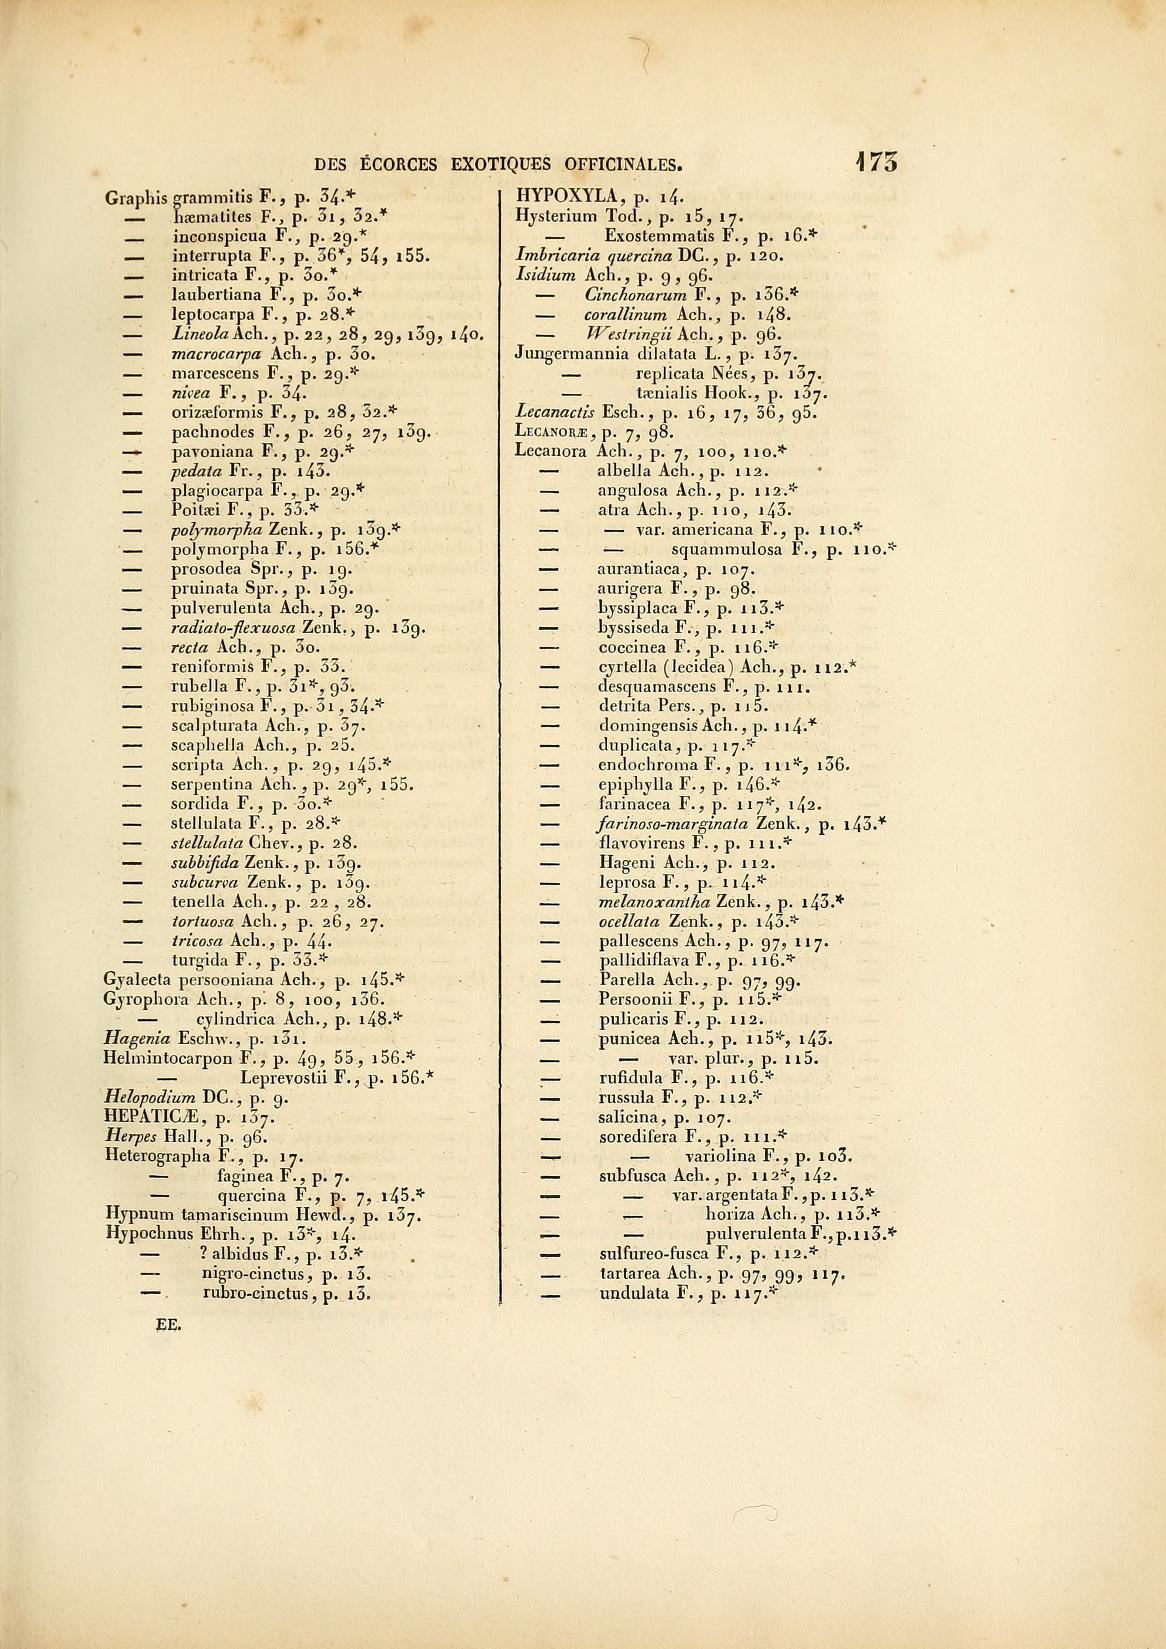 DES ÉCORCES EXOTIQUES OFFICINALES. 173
Graphis grammitis F., p. 34.*
— hæmatites F., p. 31, 32.*
— inconspicua F., p. 29.*
— interrupta F., p. 36*, 54, 155.
— intricata F., p. 30.*
— laubertiana F., p. 30.*
— leptocarpa F., p. 28.*
— Lineola Ach., p. 22, 28, 29, 139, 140.
— macrocarpa Ach., p. 30.
— marcescens F., p. 29.*
— nivea F., p. 34.
— orizæformis F., p. 28, 32.*
— pachnodes F., p. 26, 27, 139.
— pavoniana F., p. 29.*
— pedata Fr., p. 143.
— plagiocarpa F., p. 29.*
— Poitæi F., p. 33.*
— polymorpha Zenk., p. 139.*
— polymorpha F., p. 156.*
— prosodea Spr., p. 19.
— pruinata Spr., p. 139.
— pulverulenta Ach., p. 29.
— radiato-flexuosa Zenk., p. 139.
— recta Ach., p. 30.
— reniformis F., p. 33.
— rubella F., p. 31*, 93.
— rubiginosa F., p. 31, 34.*
— scalpturata Ach., p. 37.
— scaphella Ach., p. 25.
— scripta Ach., p. 29, 145.*
— serpentina Ach., p. 29*, 155.
— sordida F., p. 30.*
— stellulata F., p. 28.*
— stellulata Chev., p. 28.
— subbifida Zenk., p. 139.
— subcurva Zenk., p. 139.
— tenella Ach., p. 22, 28.
— tortuosa Ach., p. 26, 27.
— tricosa Ach., p. 44.
— turgida F., p. 33.*
Gyalecta persooniana Ach., p. 145.*
Gyrophora Ach., p. 8, 100, 136.
— cylindrica Ach., p. 148.*
Hagenia Eschw., p. 131.
Helmintocarpon F., p. 49, 55, 156.*
— Leprevostii F., p. 156.*
Helopodium DC., p. 9.
HEPATICÆ, p. 137.
Herpes Hall., p. 96.
Heterographa F., p. 17.
— faginea F., p. 7.
— quercina F., p. 7, 145.*
Hypnum tamariscinum Hewd., p. 137.
Hypochnus Ehrh., p. 13*, 14.
— ? albidus F., p. 13.*
— nigro-cinctus, p. 13.
— rubro-cinctus, p. 13.
EE.
HYPOXYLA, p. 14.
Hysterium Tod., p. 15, 17.
— Exostemmatis F., p. 16.*
Imbricaria quercina DC., p. 120.
Isidium Ach., p. 9, 96.
— Cinchonarum F., p. 136.*
— corallinum Ach., p. 148.
— Westringii Ach., p. 96.
Jungermannia dilatata L., p. 137.
— replicata Nées, p. 137.
— tænialis Hook., p. 137.
Lecanactis Esch., p. 16, 17, 36, 95.
LECANORÆ, p. 7, 98.
Lecanora Ach., p. 7, 100, 110.*
— albella Ach., p. 112.
— angulosa Ach., p. 112.*
— atra Ach., p. 110, 143.
— — var. americana F., p. 110.*
— — squammulosa F., p. 110.*
— aurantiaca, p. 107.
— aurigera F., p. 98.
— byssiplaca F., p. 113.*
— byssiseda F., p. 111.*
— coccinea F., p. 116.*
— cyrtella (lecidea) Ach., p. 112.*
— desquamascens F., p. 111.
— detrita Pers., p. 115.
— domingensis Ach., p. 114.*
— duplicata, p. 117.*
— endochroma F., p. 111*, 136.
— epiphylla F., p. 146.*
— farinacea F., p. 117*, 142.
— farinoso-marginata Zenk., p. 143.*
— flavovirens F., p. 111.*
— Hageni Ach., p. 112.
— leprosa F., p. 114.*
— melanoxantha Zenk., p. 143.*
— ocellata Zenk., p. 143.*
— pallescens Ach., p. 97, 117.
— pallidiflava F., p. 116.*
— Parella Ach., p. 97, 99.
— Persoonii F., p. 115.*
— pulicaris F., p. 112.
— punicea Ach., p. 115*, 143.
— — var. plur., p. 115.
— rufidula F., p. 116.*
— russula F., p. 112.*
— salicina, p. 107.
— soredifera F., p. 111.*
— — variolina F., p. 103.
— subfusca Ach., p. 112*, 142.
— — var. argentata F., p. 113.*
— — horiza Ach., p. 113.*
— — pulverulenta F., p. 113.*
— sulfureo-fusca F., p. 112.*
— tartarea Ach., p. 97, 99, 117.
— undulata F., p. 117.*